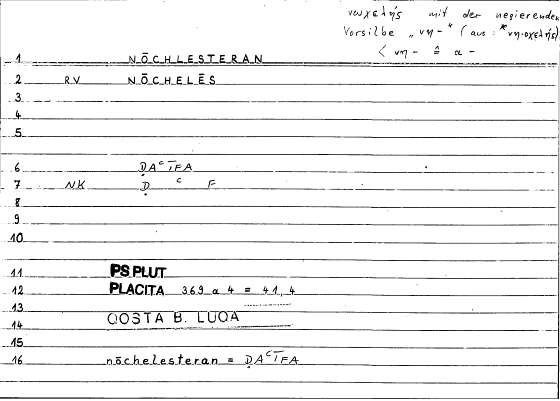 νωχελής mit der negierenden
Vorsilbe „νη-“ (aus: *νη-οχελής)
< νη- ≙ α-
1 NŌCHLESTERAN
2 RV NŌCHELĒS
3
4
5
6 ḌAᶜĪFA
7 NK Ḍ ᶜ F
8
9
10
11 PS PLUT
12 PLACITA 369 a 4 = 41, 4
13
14 QOSTA B. LUQA
15
16 nōchelesteran = ḌAᶜĪFA